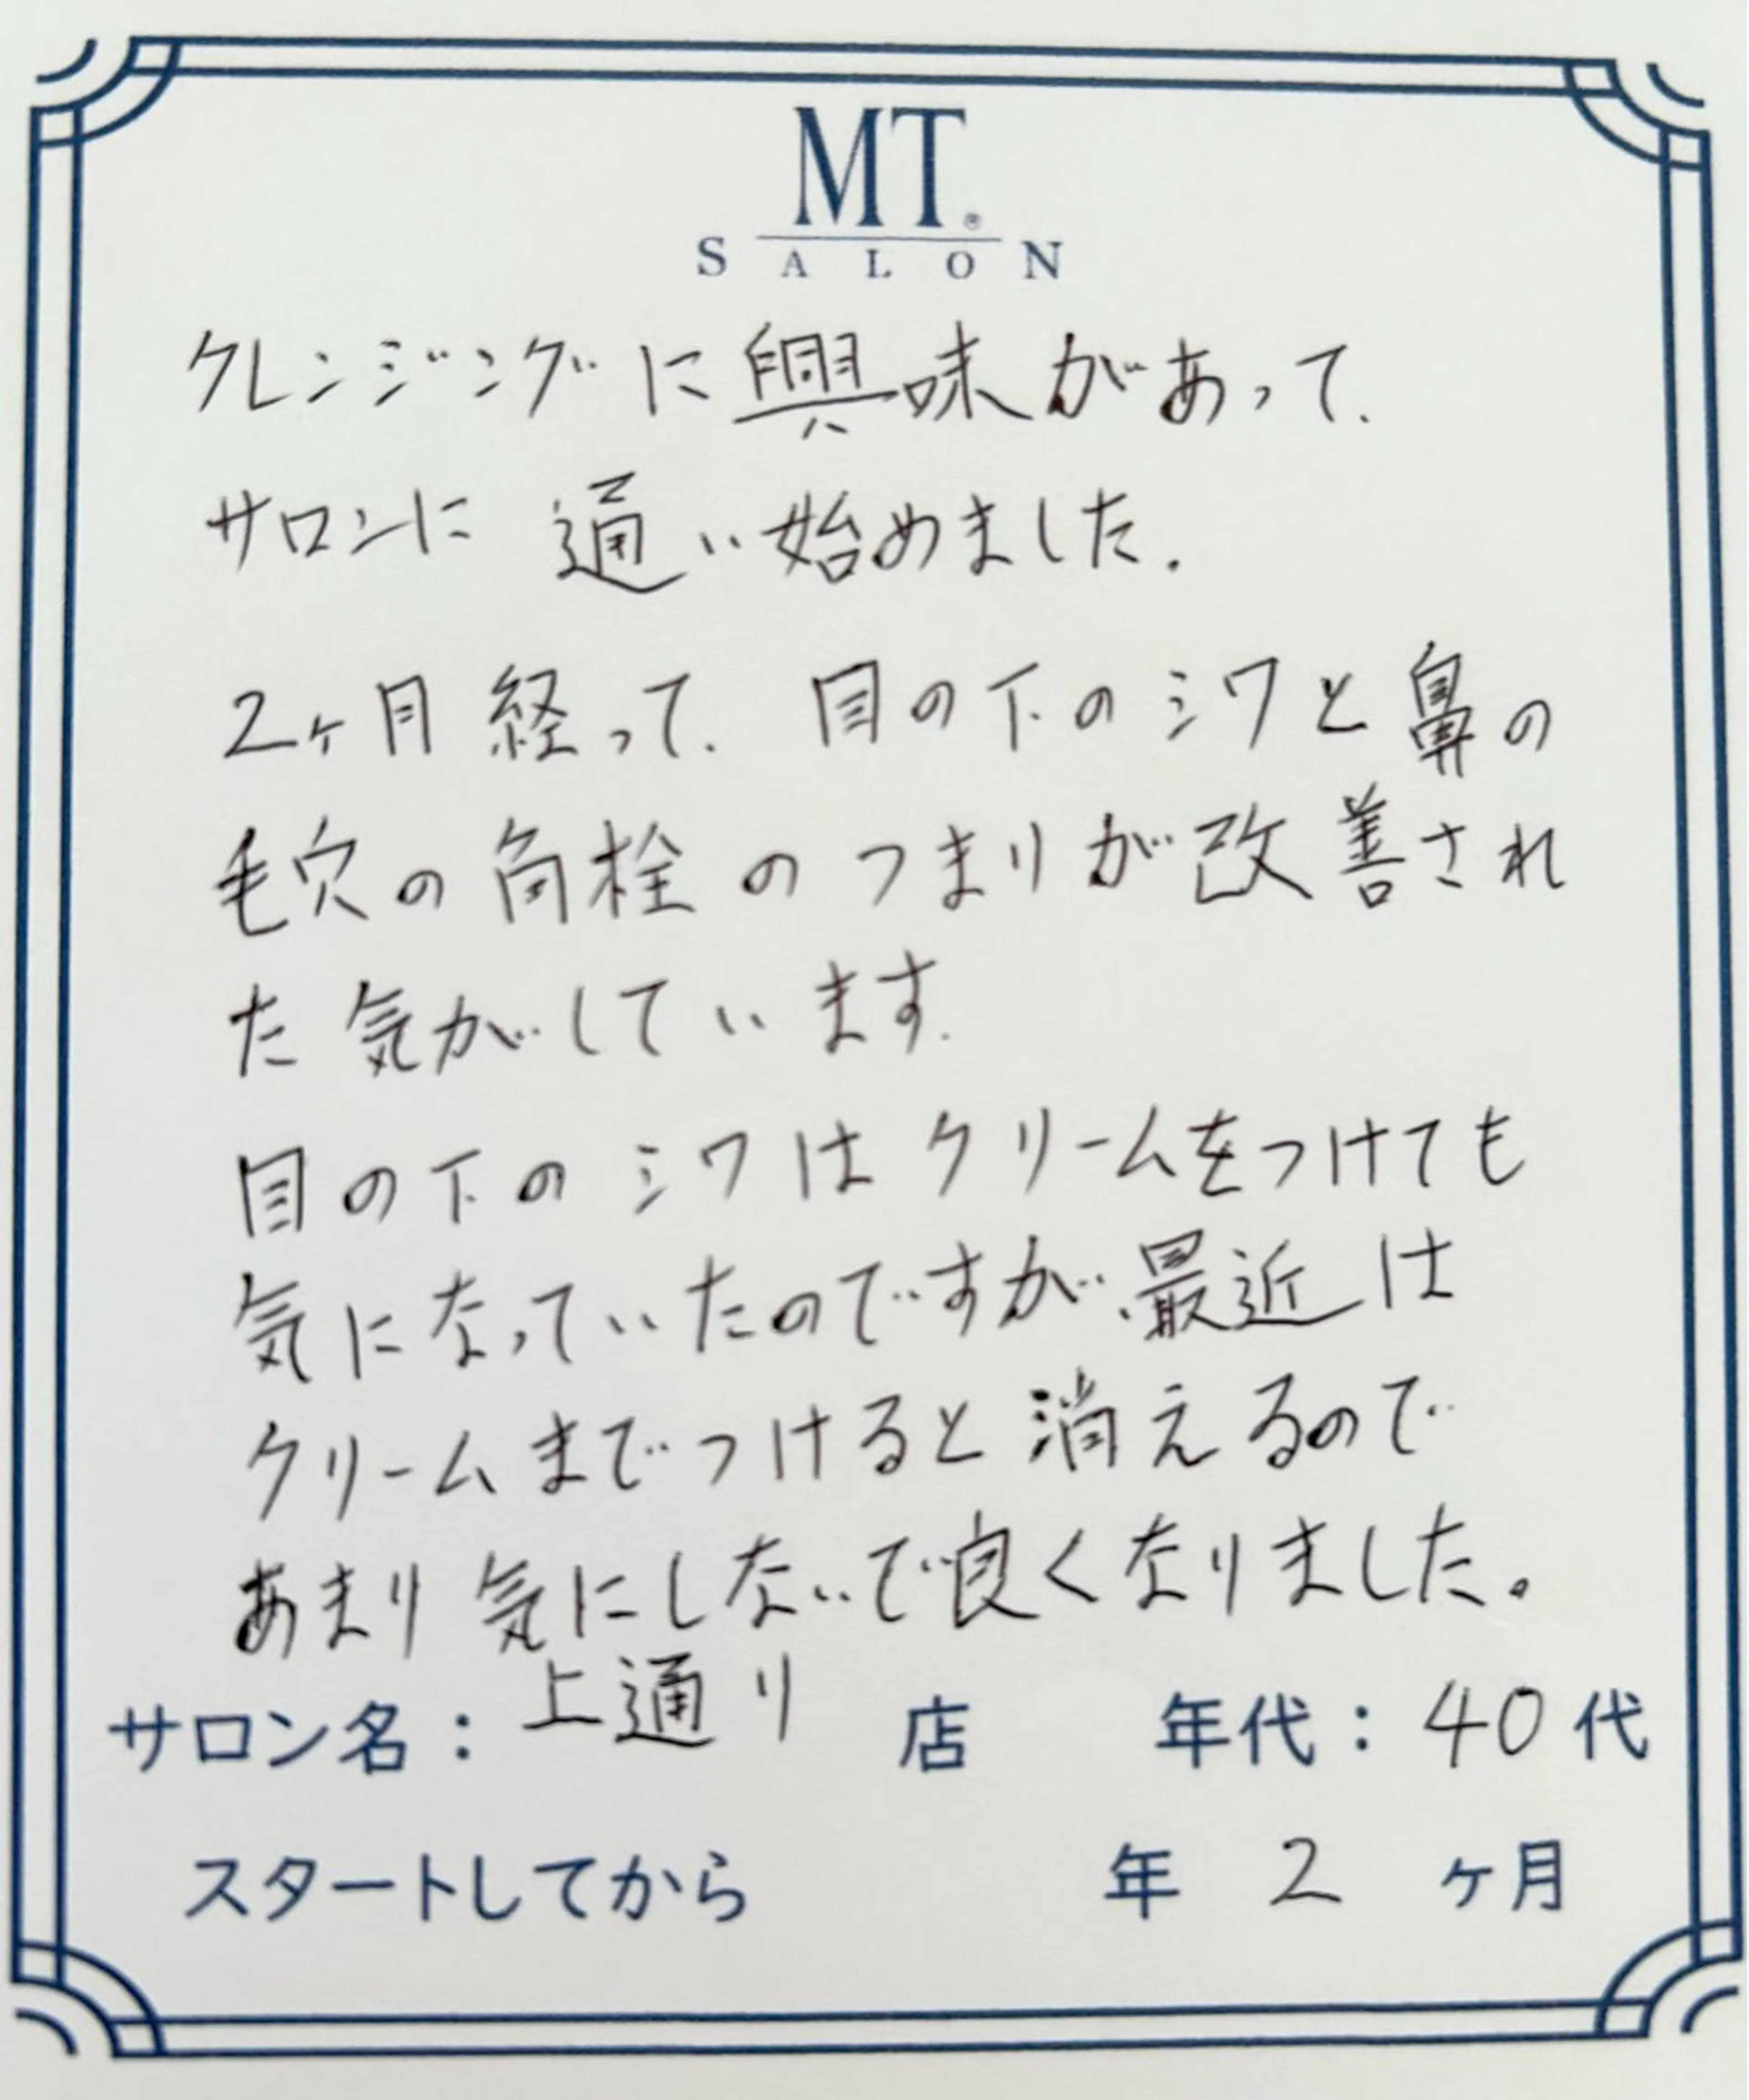 MT®
SALON
クレンジングに興味があって、
サロンに通い始めました。
2ヶ月経って、目の下のシワと鼻の
毛穴の角栓のつまりが改善され
た気がしています。
目の下のシワはクリームをつけても
気になっていたのですが、最近は
クリームまでつけると消えるので
あまり気にしないで良くなりました。
サロン名：上通り店 年代：40代
スタートしてから 年 2 ヶ月